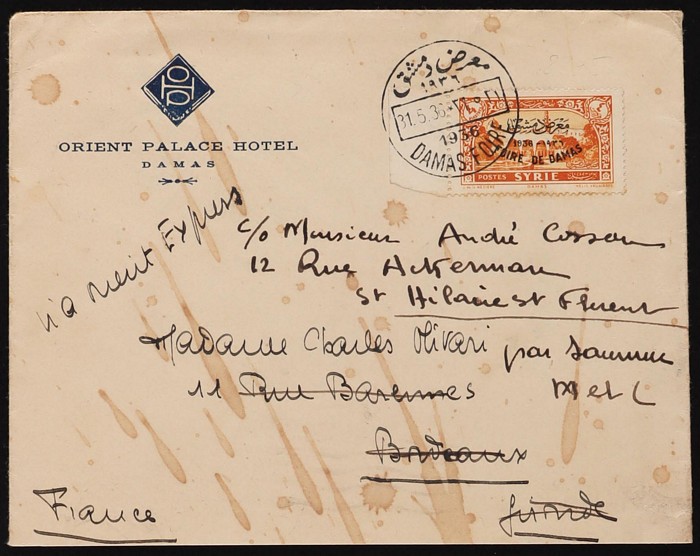 ORIENT PALACE HOTEL
DAMAS
معرض دمشق
١٩٣٦
21.5.36
1936
DAMAS FOIRE
معرض دمشق
1936-١٩٣٦
FOIRE DE DAMAS
POSTES SYRIE
Via orient Express
c/o Monsieur André Cosson
12 Rue Ackerman
St Hilaire St Florent
par Saumur
M et L
Madame Charles Olivari
11 Rue Barennes
Bordeaux
Gironde
France